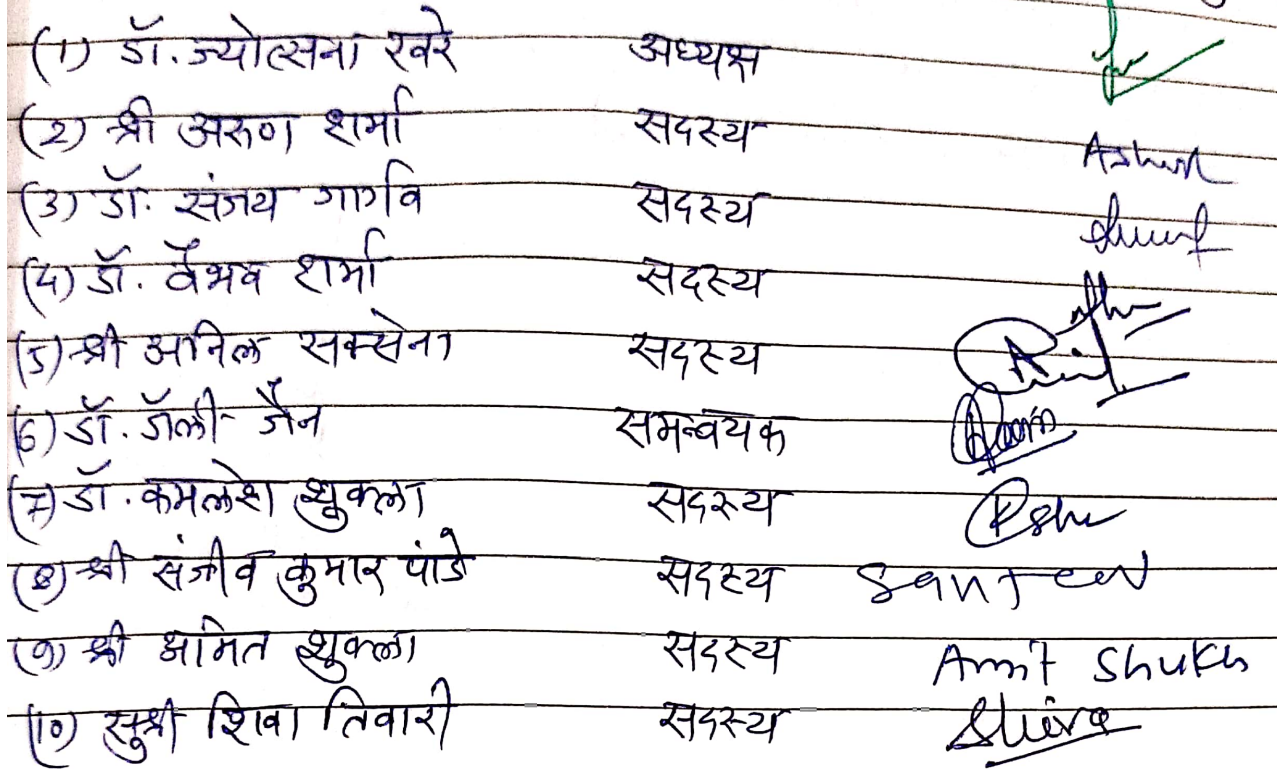 (1) डॉ. ज्योत्सना खरे अध्यक्ष
(2) श्री अरुण शर्मा सदस्य
(3) डॉ. संजय गार्गव सदस्य
(4) डॉ. वैभव शर्मा सदस्य
(5) श्री अनिल सक्सेना सदस्य
(6) डॉ. डॉली जैन समन्वयक
(7) डॉ. कमलेश शुक्ला सदस्य
(8) श्री संजीव कुमार पांडे सदस्य Sanjeev
(9) श्री अमित शुक्ला सदस्य Amit Shukla
(10) सुश्री शिवा तिवारी सदस्य Shiva